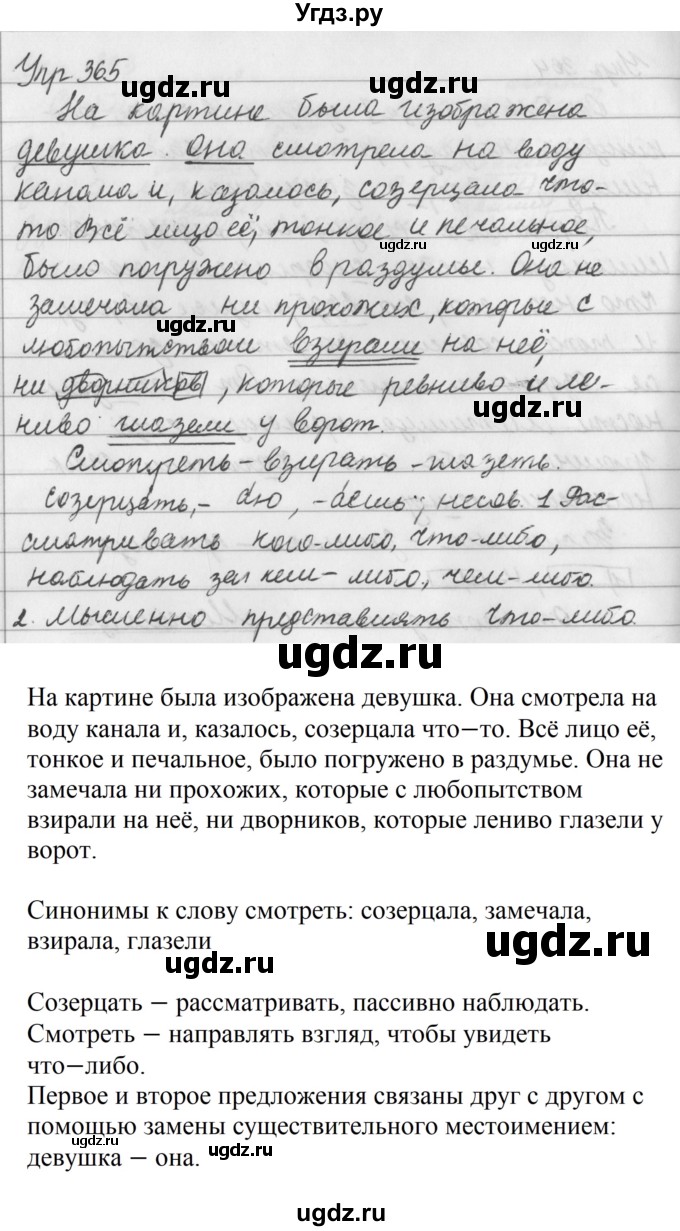 Угдз.ру
Упр 365
На картине была изображена
девушка. Она смотрела на воду
канала и, казалось, созерцала что-
то Всё лицо её, тонкое и печальное,
было погружено в раздумье. Она не
замечала ни прохожих, которые с
любопытством взирали на неё,
ни дворников, которые ревниво и ле-
ниво глазели у ворот.
Смотреть – взирать – глазеть.
созерцать, - аю, - аешь; несов. 1 Рас-
сматривать кого-либо, что-либо,
наблюдать за кем-либо, чем-либо.
2. Мысленно представлять что-либо.
ugdz.ru
На картине была изображена девушка. Она смотрела на
воду канала и, казалось, созерцала что−то. Всё лицо её,
тонкое и печальное, было погружено в раздумье. Она не
замечала ни прохожих, которые с любопытством
взирали на неё, ни дворников, которые лениво глазели у
ворот.
Синонимы к слову смотреть: созерцала, замечала,
взирала, глазели
Созерцать − рассматривать, пассивно наблюдать.
Смотреть − направлять взгляд, чтобы увидеть
что−либо.
Первое и второе предложения связаны друг с другом с
помощью замены существительного местоимением:
девушка − она.
ugdz.ru